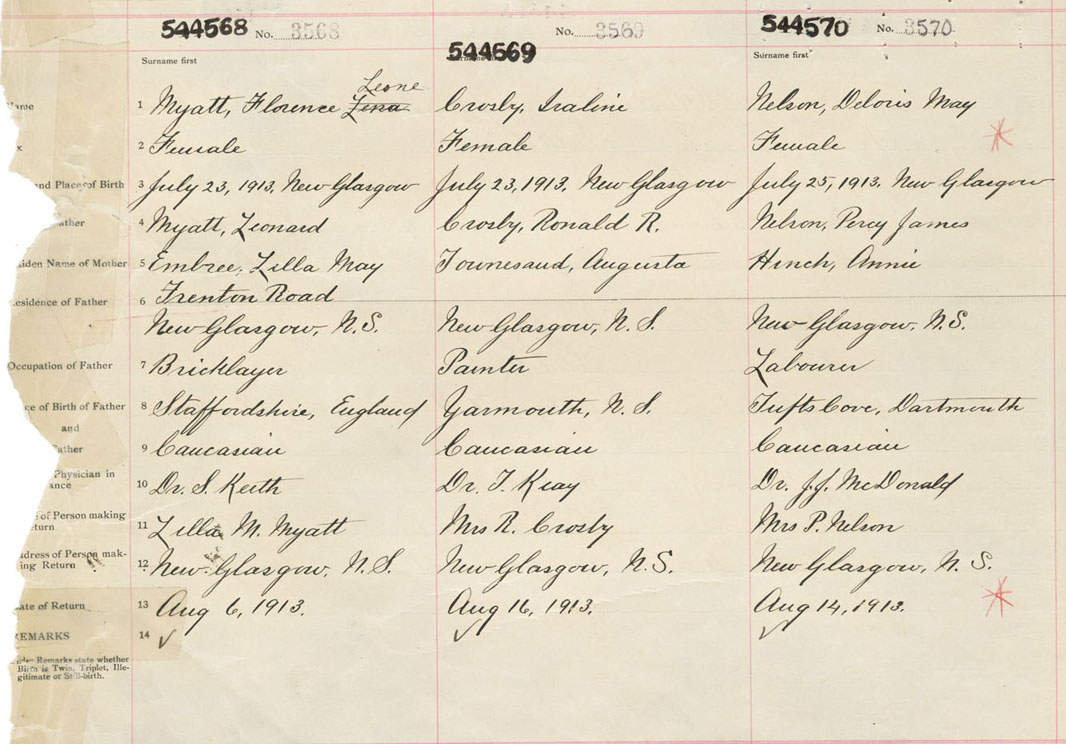 544568 No. 3568
544569 No. 3569
544570 No. 3570
Surname first
Surname first
Leone
Name 1 Myatt, Florence Lena Crosby, Iraline Nelson, Deloris May
x 2 Female Female Female
and Place of Birth 3 July 23, 1913. New Glasgow July 23, 1913. New Glasgow July 25, 1913. New Glasgow
ather 4 Myatt, Leonard Crosby, Ronald R. Nelson, Percy James
iden Name of Mother 5 Embree, Lilla May Townesand, Augusta Hinch, Annie
esidence of Father 6 Trenton Road
New Glasgow, N.S. New Glasgow, N.S. New Glasgow, N.S.
Occupation of Father 7 Bricklayer Painter Labourer
ce of Birth of Father 8 Staffordshire, England Yarmouth, N.S. Tufts Cove, Dartmouth
and
ather 9 Caucasian Caucasian Caucasian
Physician in
ance 10 Dr. S. Keith Dr. T. Keay Dr. J.J. McDonald
of Person making
eturn 11 Lilla M. Myatt Mrs R. Crosby Mrs P. Nelson
dress of Person mak-
ing Return 12 New Glasgow, N.S. New Glasgow, N.S. New Glasgow, N.S.
ate of Return 13 Aug 6, 1913. Aug 16, 1913. Aug 14, 1913.
REMARKS 14
der Remarks state whether
Birth is Twin, Triplet, Ille-
gitimate or Still-birth.